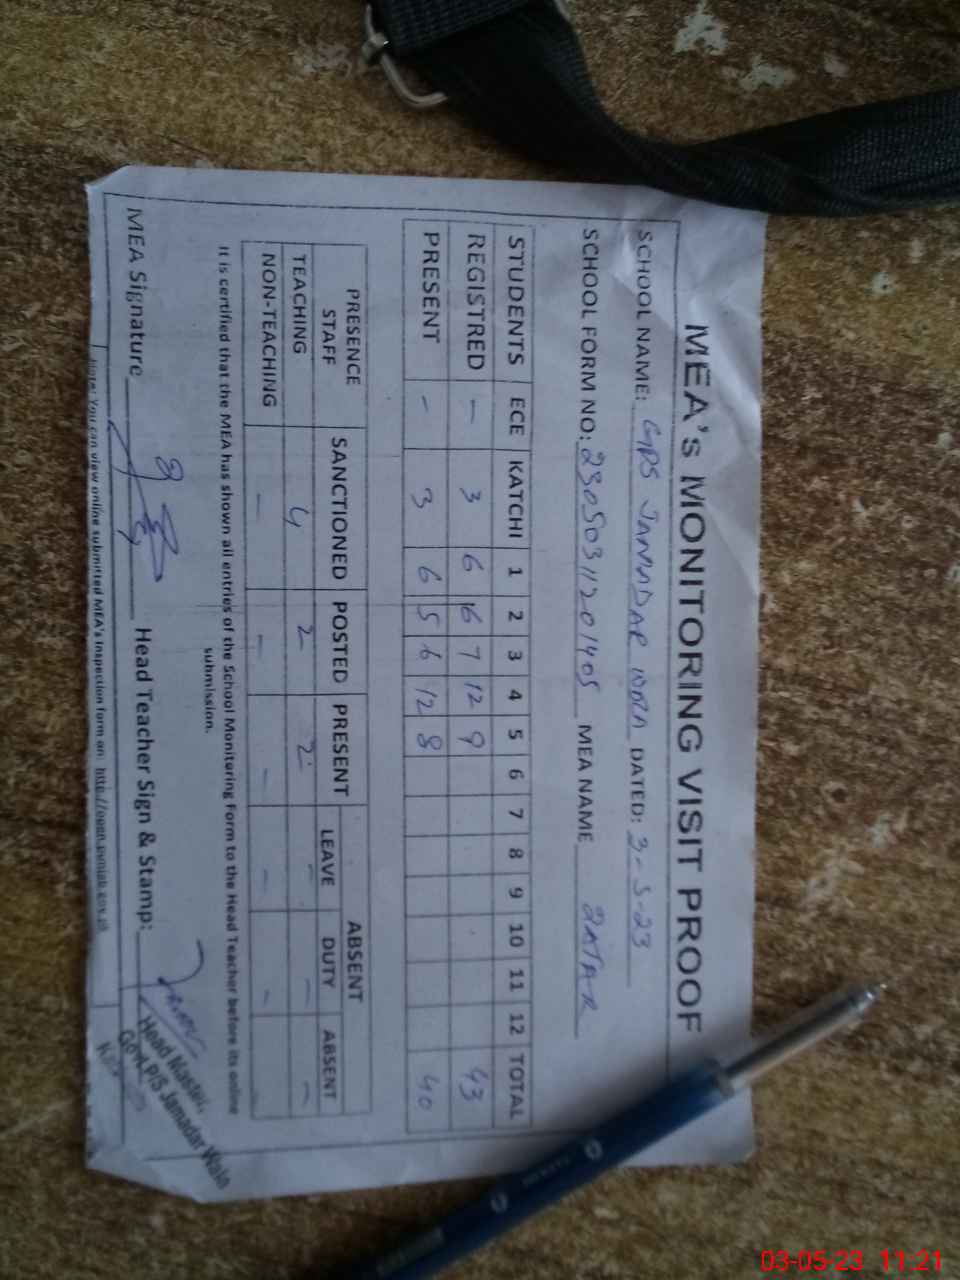 MEA's MONITORING VISIT PROOF
SCHOOL NAME: GPS JAMADAR WALA DATED: 3-5-23
SCHOOL FORM NO: 23050311201405 MEA NAME ZAFAR
STUDENTS ECE KATCHI 1 2 3 4 5 6 7 8 9 10 11 12 TOTAL
REGISTRED - 3 6 6 7 12 9 43
PRESENT - 3 6 5 6 12 8 40
PRESENCE STAFF SANCTIONED POSTED PRESENT ABSENT
LEAVE DUTY ABSENT
TEACHING 4 2 2 - - -
NON-TEACHING - - - - -
It is certified that the MEA has shown all entries of the School Monitoring Form to the Head Teacher before its online
submission.
MEA Signature Head Teacher Sign & Stamp:
Head Master,
Govt. P/S Jamadar Wala
Note: You can view online submitted MEA's Inspection form on: http://open.punjab.gov.pk
03-05-23 11:21